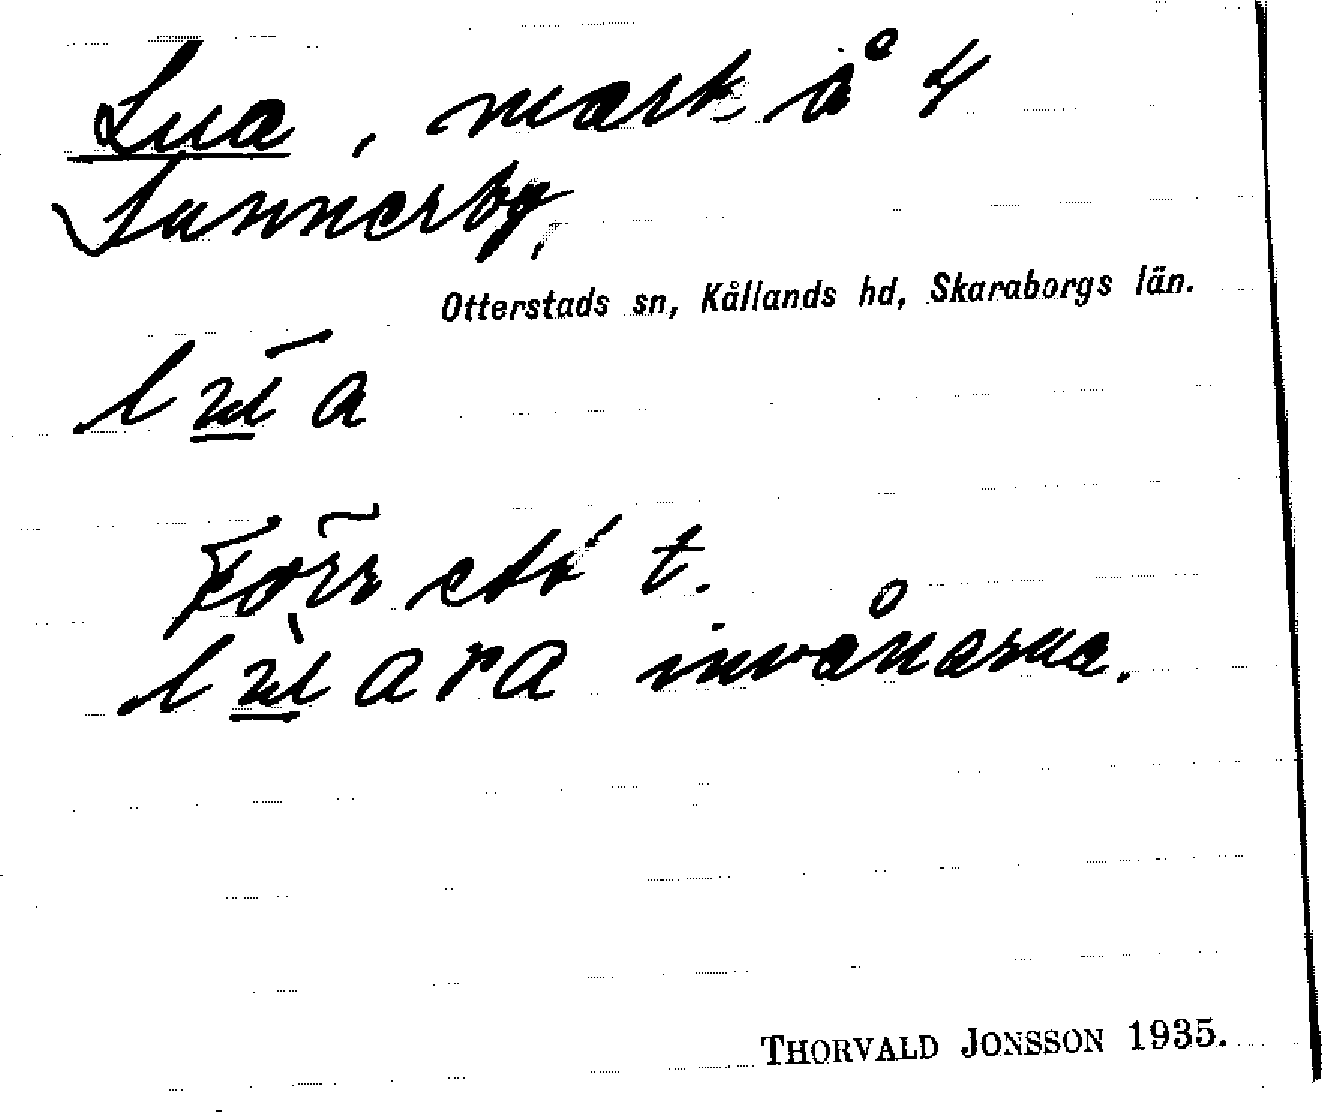 Lua, mark å 4
Sunnerby,
Otterstads sn, Kållands hd, Skaraborgs län.
Förr ett t.
invånarna.
THORVALD JONSSON 1935.